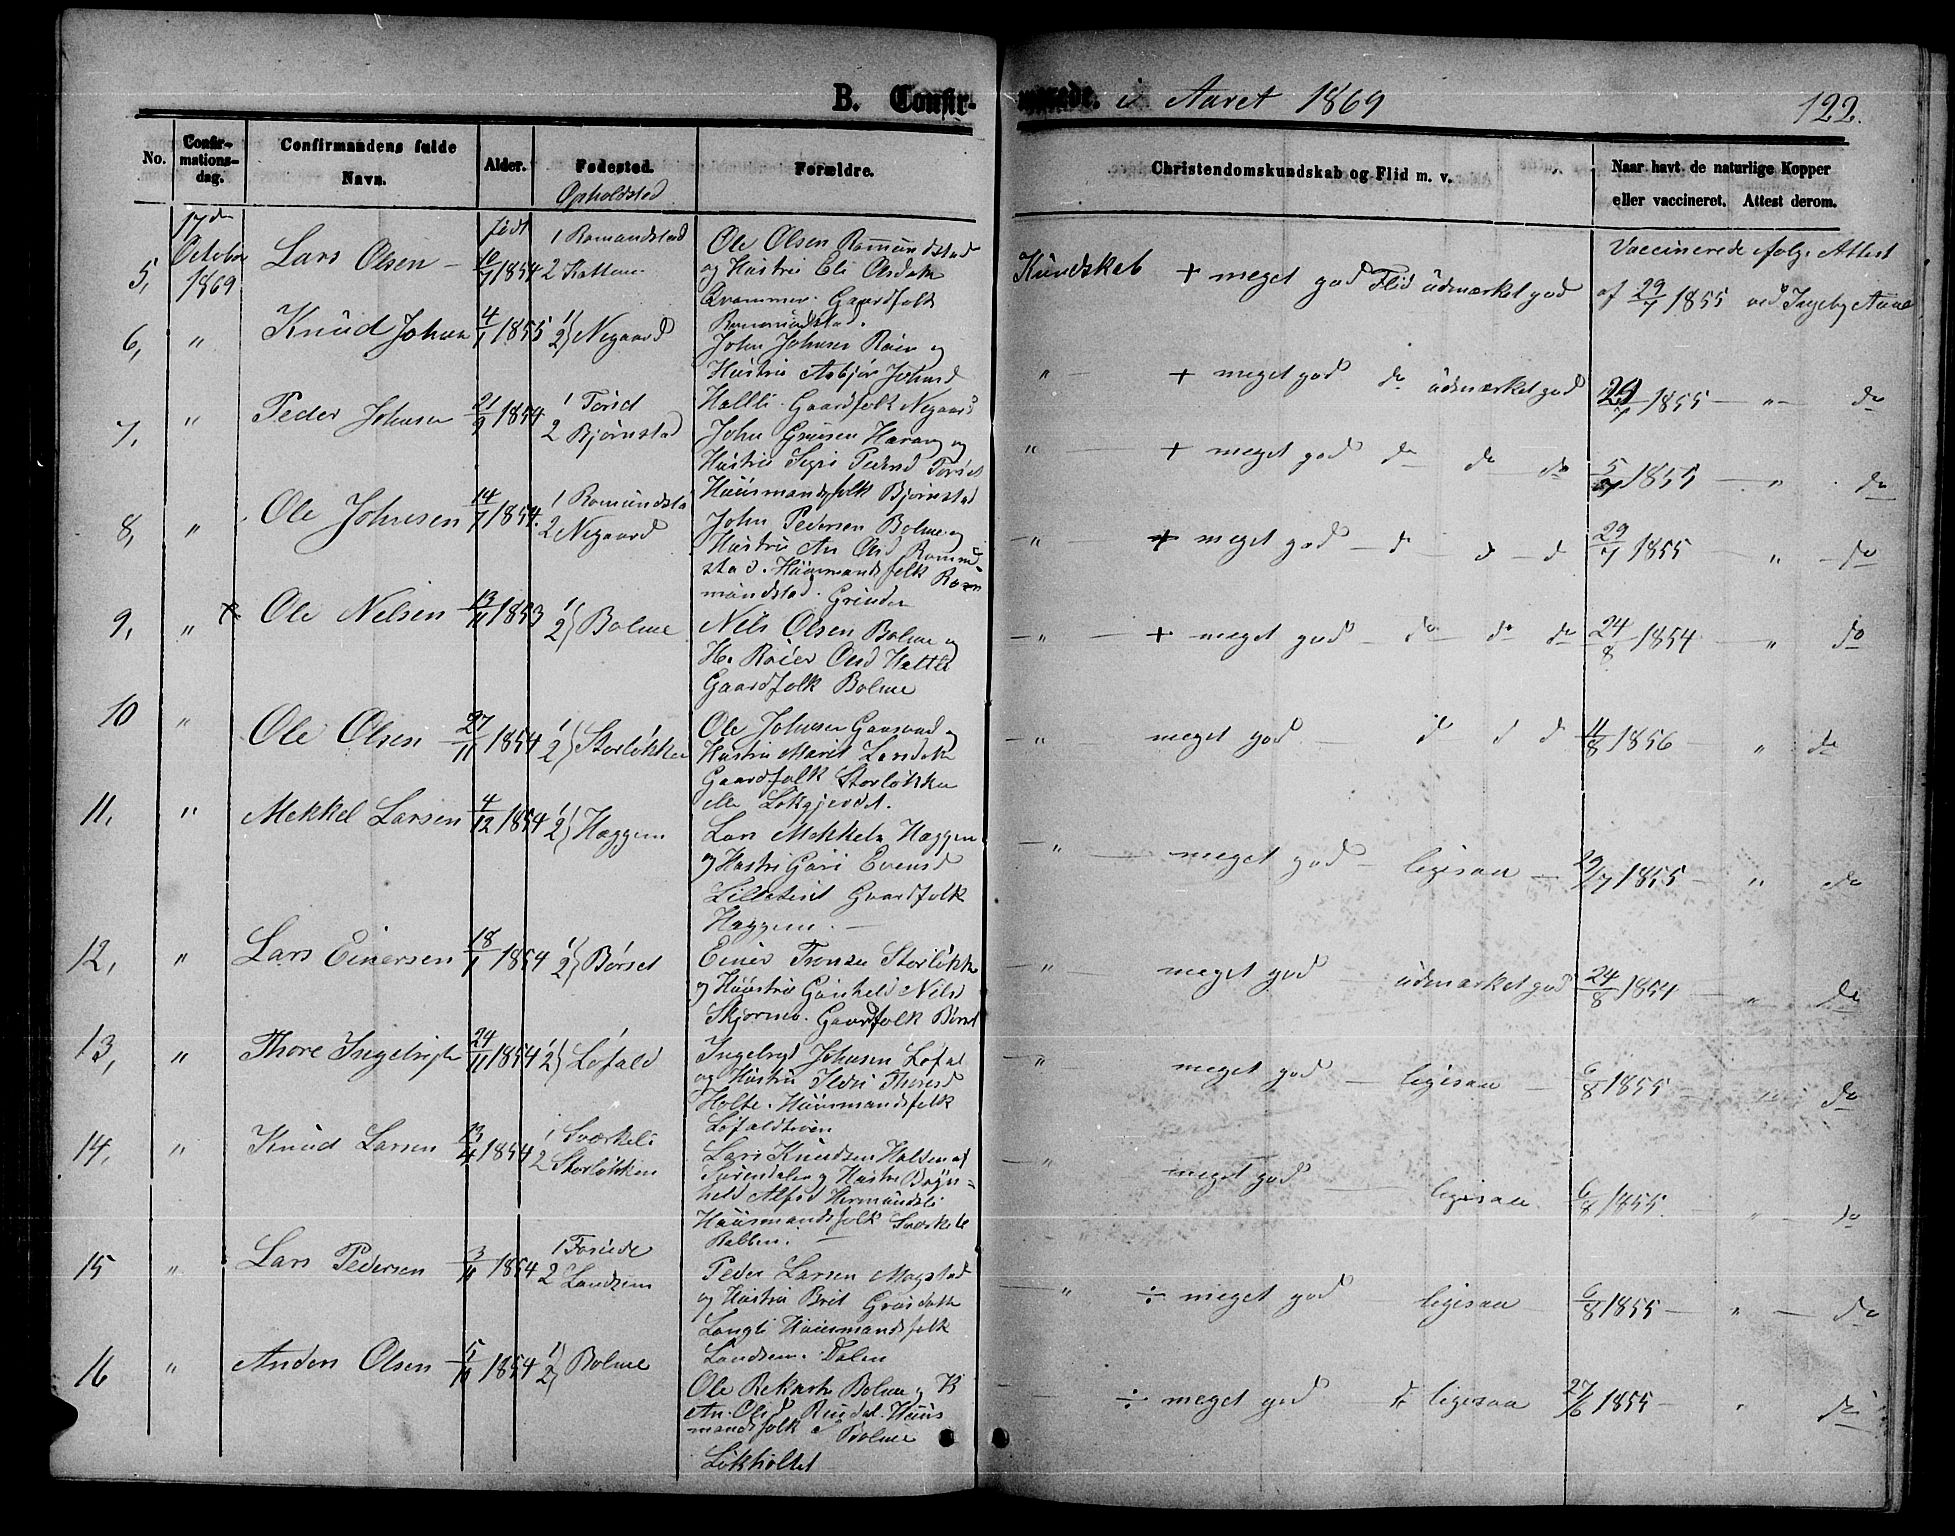 B. Confir-
merede. i Aaret 1869
122.
No.
Confir-
mations-
dag.
Confirmandens fulde
Navn.
Alder.
Fødested.
Opholdssted
Forældre.
Christendomskundskab og Flid m. v.
Naar havt de naturlige Kopper
eller vaccineret. Attest derom.
5, 17de October 1869 Lars Olsen - født 16/7 1854 1 Romundstad 2 Kattem
Ole Olsen Romundstad
og Hustru Eli Olsdatt
Gaardfolk
Romundstad.
Kundskab + meget god Flid udmærket god
Vaccinerede ifølge Attest
af 29/7 1855 ved Ingeb. Aune
6, " Knud Johnsen 4/1 1855 1 2} Negaard
John Johnsen Røen og
Hustru Asbjør Johnsd
Halti Gaardfolk Negaard
" + meget god do udmærket god 29/7 1855 - " - do
7, " Peder Johnsen 21/9 1854 1 Torset 2 Bjørnstad
John Harang og
Hustru Sigri Pedersd Torset
Huusmandsfolk Bjørnstad
" + meget god do do do 5/7 1855 - " do
8, " Ole Johnsen 14/7 1854. 1 Romundsta 2 Negaard
John Pedersen Bolme og
Hustru An Olsd Romund-
stad. Huusmandsfolk Rom
mundstad. Grinden
" + meget god - d - d - d 29/7 1855 - " - do
9, " Ole Nilsen 13/11 1853 1 2} Bolme
Nils Olsen Bolme og
H. Olsd Haltli
Gaardfolk Bolme
" + meget god - do do do 24/8 1854 - " do
10 " Ole Olsen 27/11 1854 1 2} Storløkken
Ole Johnsen og
Hustru Marit Larsdatt
Gaardfolk Storløkken
eller Løkgjerdet.
" - meget god - d d d 11/8 1856 - " do
11, " Mekkel Larsen 4/12 1854 1 2} Haggen
Lars Mekkels Haggen
og Hustru Guri Evensd
Gaardfolk
Haggen. -
" - meget god - ligesaa - 29/7 1855 - " do
12, " Lars Einersen 18/1 1854 1 2} Børset
Einer Storløkk
og Huustru Gunhild Nilsd
Skjermo. Gaardfolk Børset
" - meget god - udmærket god 24/8 1854 - " do
13, " Thore Ingebrigts 24/11 1854 1 2} Løfald
Ingebrigt Johnsen Løfal
og Hustru Ildri Thoresd
Holte. Huusmandsfolk
Løfaldteien
" meget god - ligesaa - 6/8 1855 - " do
14, " Knud Larsen 13/4 1854 1 Sværkeli 2 Storløkken
Lars Knudsen Halsen af
Surendalen og Hustru Bøgn-
hild Hermundsli
Huusmandsfolk Sværkeli
Rabben.
" meget god - ligesaa 6/8 1855 - " - do
15 " Lars Pedersen 3/11 1854 1 Foseide 2 Landsem
Peder Larsen Mogstad
og Hustru Brit
Langli Huusmandsfolk
Landsem. Dalen
" ÷ meget god ligesaa - 6/8 1855 - " - do
16 " Anders Olsen 5/11 1854 1 2} Bolme
Ole Bolme og H
An Olsd Rindal. Huus
mandsfolk Bolme
Løkholtet
÷ meget god - do ligesaa 27/6 1855 - " do